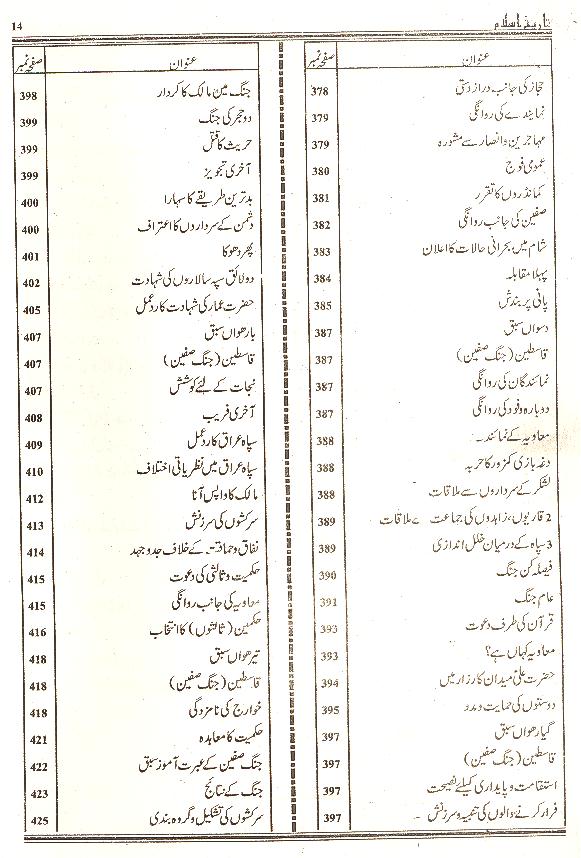 تاریخ اسلام 14
عنوان صفحہ نمبر
حجاز کی جانب دراز دستی 378
نمایندے کی روانگی 379
مہاجرین و انصار سے مشورہ 379
عمومی فوج 380
کمانڈروں کا تقرر 381
صفین کی جانب روانگی 382
شام میں بحرانی حالات کا اعلان 383
پہلا مقابلہ 384
پانی پر بندش 385
دسواں سبق 387
قاسطین (جنگ صفین) 387
نمائندگان کی روانگی 387
دوبارہ وفود کی روانگی 387
معاویہ کے نمائندے 388
دغہ بازی کمزور کا حربہ 388
لشکر کے سرداروں سے ملاقات 388
2 قاریوں، زاہدوں کی جماعت سے ملاقات 389
3- سپاہ کے درمیان خلل اندازی 389
فیصلہ کن جنگ 390
عام جنگ 391
قرآن کی طرف دعوت 393
معاویہ کہاں ہے؟ 393
حضرت علیؑ میدان کارزار میں 394
دوستوں کی حمایت و مدد 395
گیارھواں سبق 397
قاسطین (جنگ صفین) 397
استقامت و پایداری کیلئے نصیحت 397
فرار کرنے والوں کی تنبیہ و سرزنش 397
عنوان صفحہ نمبر
جنگ میں مالک کا کردار 398
دو حجر کی جنگ 399
حریث کا قتل 399
آخری تجویز 399
بدترین طریقے کا سہارا 400
دشمن کے سرداروں کا اعتراف 400
پھر دھوکا 401
دو لائق سپہ سالاروں کی شہادت 402
حضرت عمار کی شہادت کا ردعمل 405
بارھواں سبق 407
قاسطین (جنگ صفین) 407
نجات کے لئے کوشش 407
آخری فریب 408
سپاہ عراق کا ردعمل 409
سپاہ عراق میں نظریاتی اختلاف 410
مالک کا واپس آنا 412
سرکشوں کی سرزنش 413
نفاق و حماقت کے خلاف جدوجہد 414
حکمیت و ثالثی کی دعوت 415
معاویہ کی جانب روانگی 415
حکمین (ثالثوں) کا انتخاب 416
تیرھواں سبق 418
قاسطین (جنگ صفین) 418
خوارج کی نامزدگی 418
حکمیت کا معاہدہ 421
جنگ صفین کے عبرت آموز سبق 422
جنگ کے نتائج 423
سرکشوں کی تشکیل و گروہ بندی 425